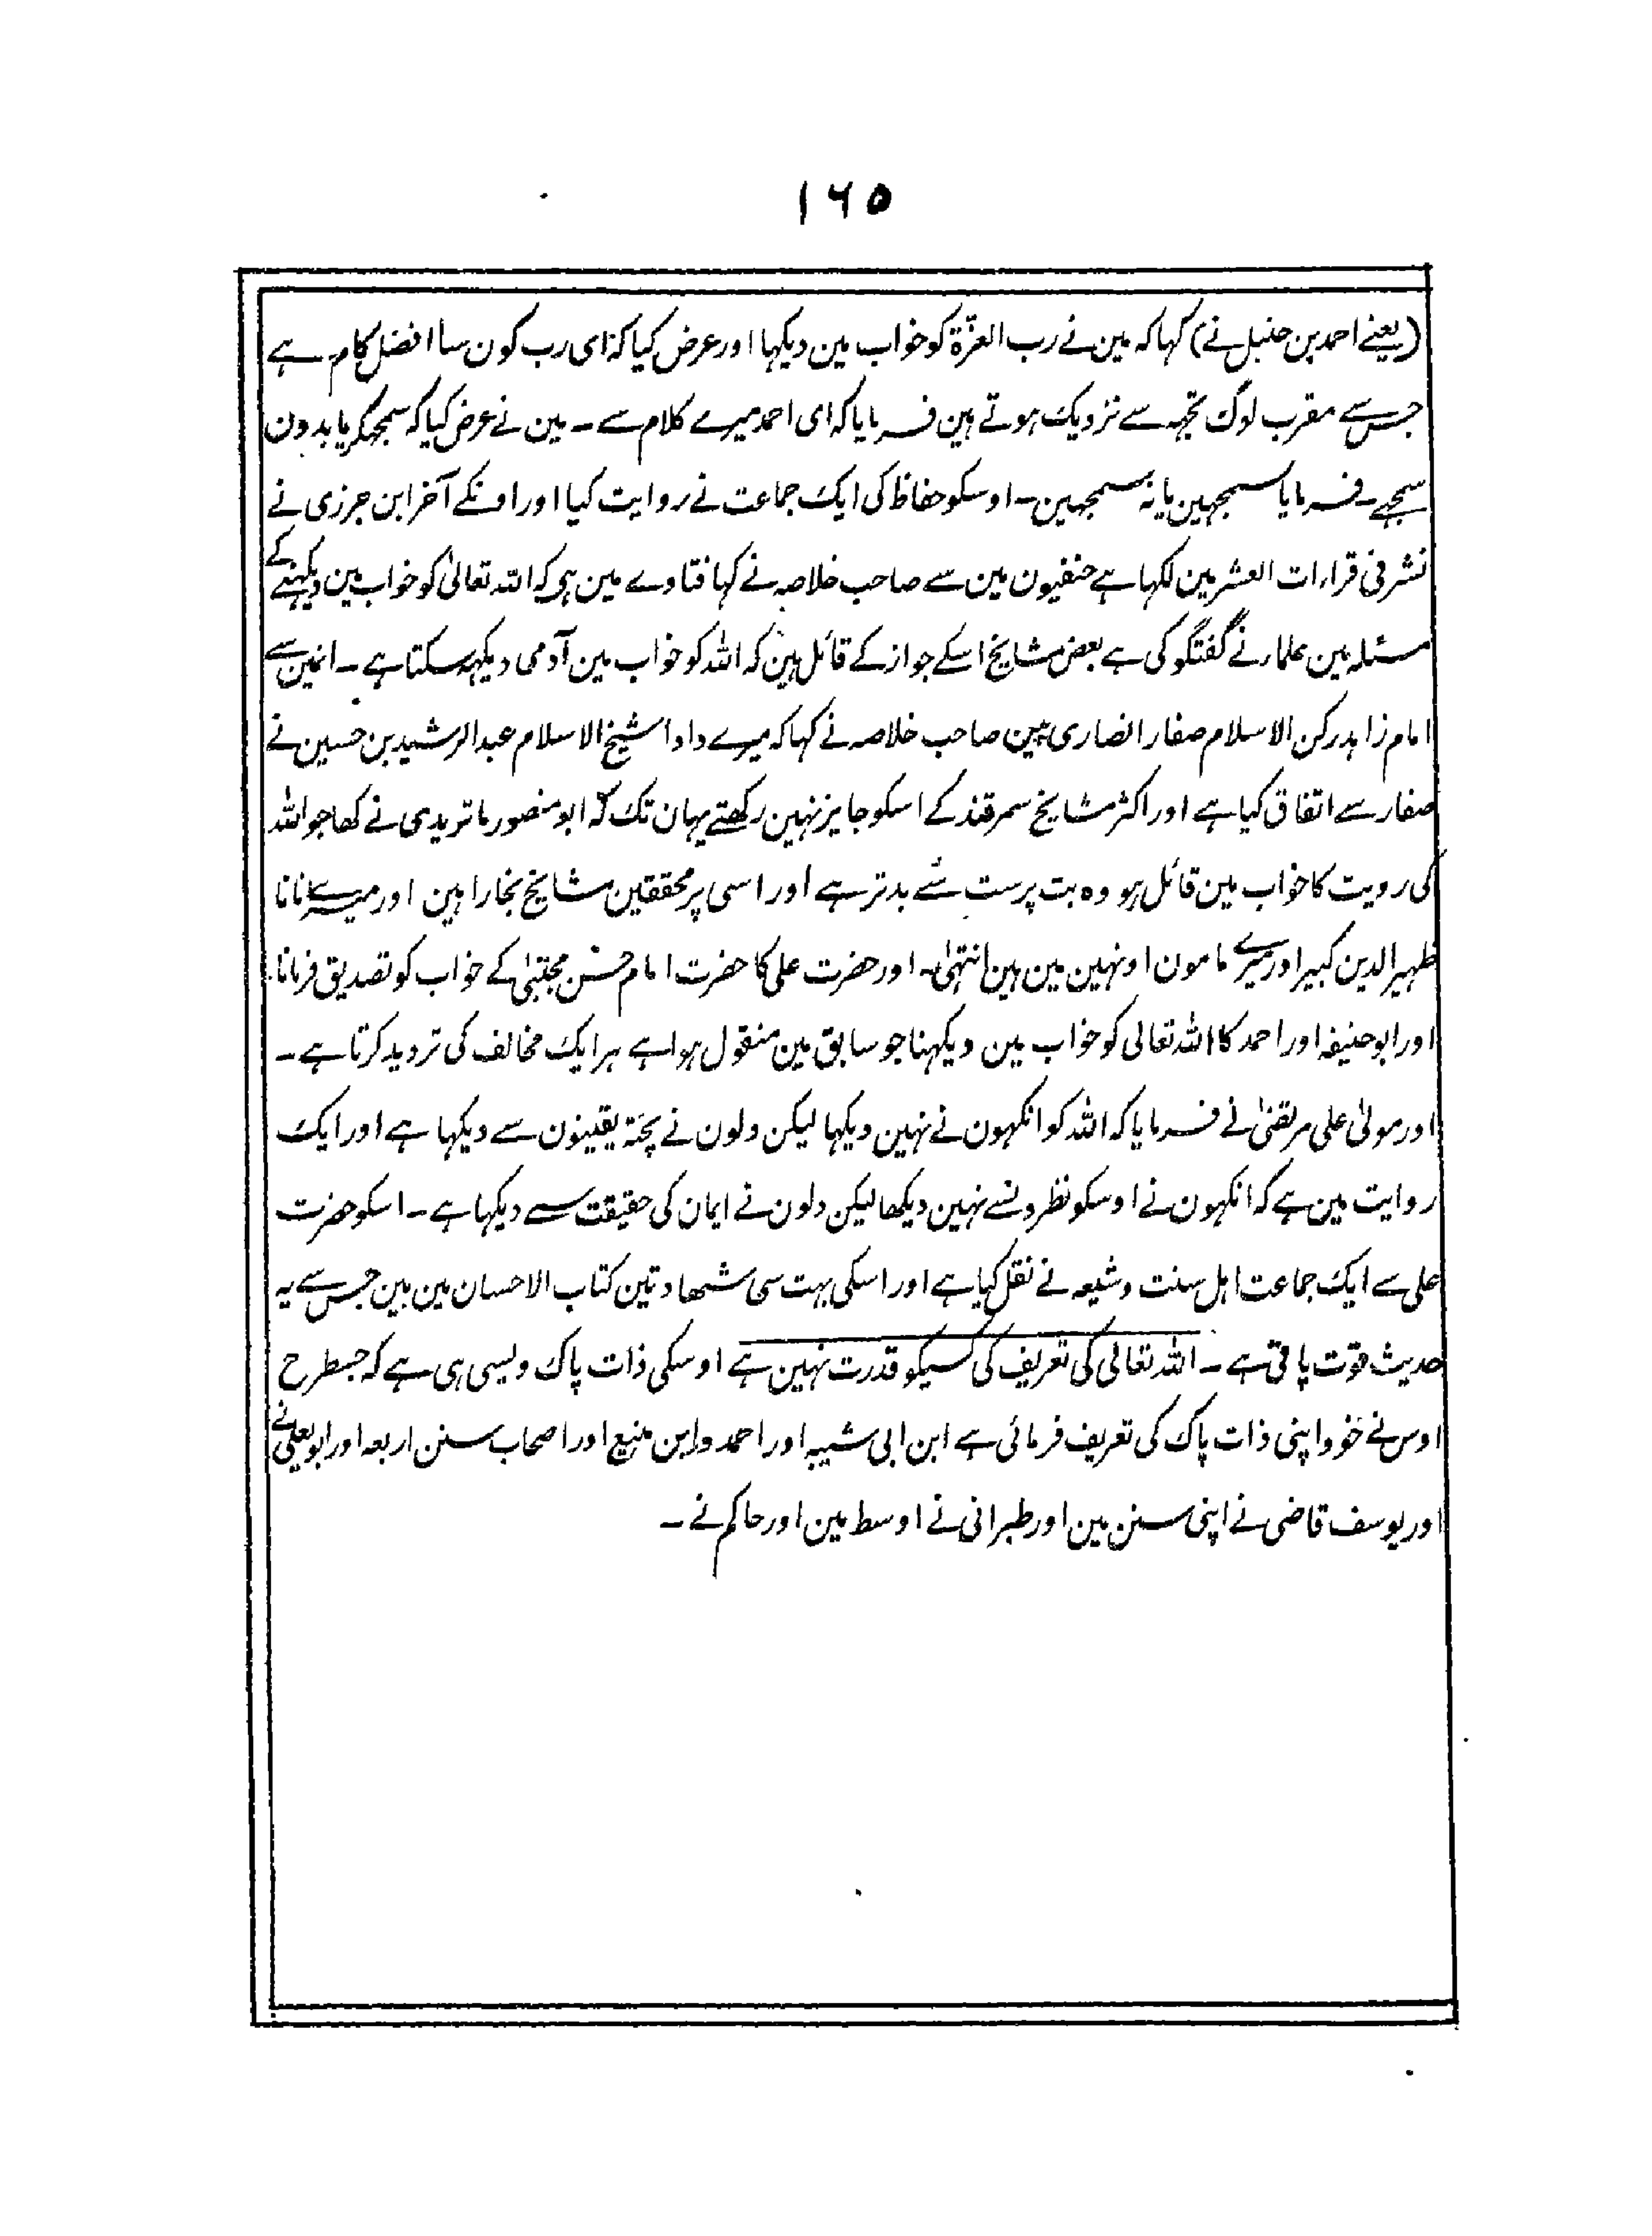 ۱۶۵
(یعنے احمد بن حنبل نے) کہا کہ مین نے رب العزّة کو خواب مین دیکہا اور عرض کیا کہ ای رب کون سا افضل کام ہے
جس سے مقرب لوگ تجہہ سے نزدیک ہوتے ہین فرمایا کہ ای احمد میرے کلام سے ۔ مین نے عرض کیا کہ سمجھکر یا بدون
سمجھے ۔ فرمایا سمجہین یا نہ سمجہین ۔ اوسکو حفاظ کی ایک جماعت نے روایت کیا اور اونکے آخر ابن جرزی نے
نشر فی قراءات العشر مین لکہا ہے حنفیون مین سے صاحب خلاصہ نے کہا فتاوے مین ہی کہ اللہ تعالیٰ کو خواب مین دیکہنے کے
مسئلہ مین علماء نے گفتگو کی ہے بعض مشایخ اسکے جواز کے قائل ہین کہ اللہ کو خواب مین آدمی دیکہہ سکتا ہے ۔ انمین سے
امام زاہد رکن الاسلام صفار انصاری ہین صاحب خلاصہ نے کہا کہ میرے دادا شیخ الاسلام عبد الرشید بن حسین نے
صفار سے اتفاق کیا ہے اور اکثر مشایخ سمرقند کے اسکو جایز نہین رکھتے یہان تک کہ ابو منصور ماتریدی نے کھا جو اللہ
کی رویت کا خواب مین قائل ہو وہ بت پرست سے بدتر ہے اور اسی پر محققین مشایخ بخارا ہین اور میرے نانا
ظہیر الدین کبیر اور میرے مامون اونہین مین ہین انتہیٰ ۔ اور حضرت علی کا حضرت امام حسن مجتبیٰ کے خواب کو تصدیق فرمانا
اور ابو حنیفہ اور احمد کا اللہ تعالی کو خواب مین دیکہنا جو سابق مین منقول ہوا ہے ہر ایک مخالف کی تردید کرتا ہے ۔
اور مولیٰ علی مرتضیٰ نے فرمایا کہ اللہ کو انکہون نے نہین دیکہا لیکن دلون نے پختہ یقینون سے دیکہا ہے اور ایک
روایت مین ہے کہ انکہون نے اوسکو نظرونسے نہین دیکھا لیکن دلون نے ایمان کی حقیقت سے دیکہا ہے ۔ اسکو حضرت
علی سے ایک جماعت اہل سنت و شیعہ نے نقل کیا ہے اور اسکی بہت سی شھادتین کتاب الاحسان مین ہین جس سے یہ
حدیث قوّت پاتی ہے ۔ اللہ تعالی کی تعریف کی کسیکو قدرت نہین ہے اوسکی ذات پاک ویسی ہی ہے کہ جسطرح
اوس نے خود اپنی ذات پاک کی تعریف فرمائی ہے ابن ابی شیبہ اور احمد و ابن منیع اور اصحاب سنن اربعہ اور ابو یعلی نے
اور یوسف قاضی نے اپنی سنن مین اور طبرانی نے اوسط مین اور حاکم نے ۔